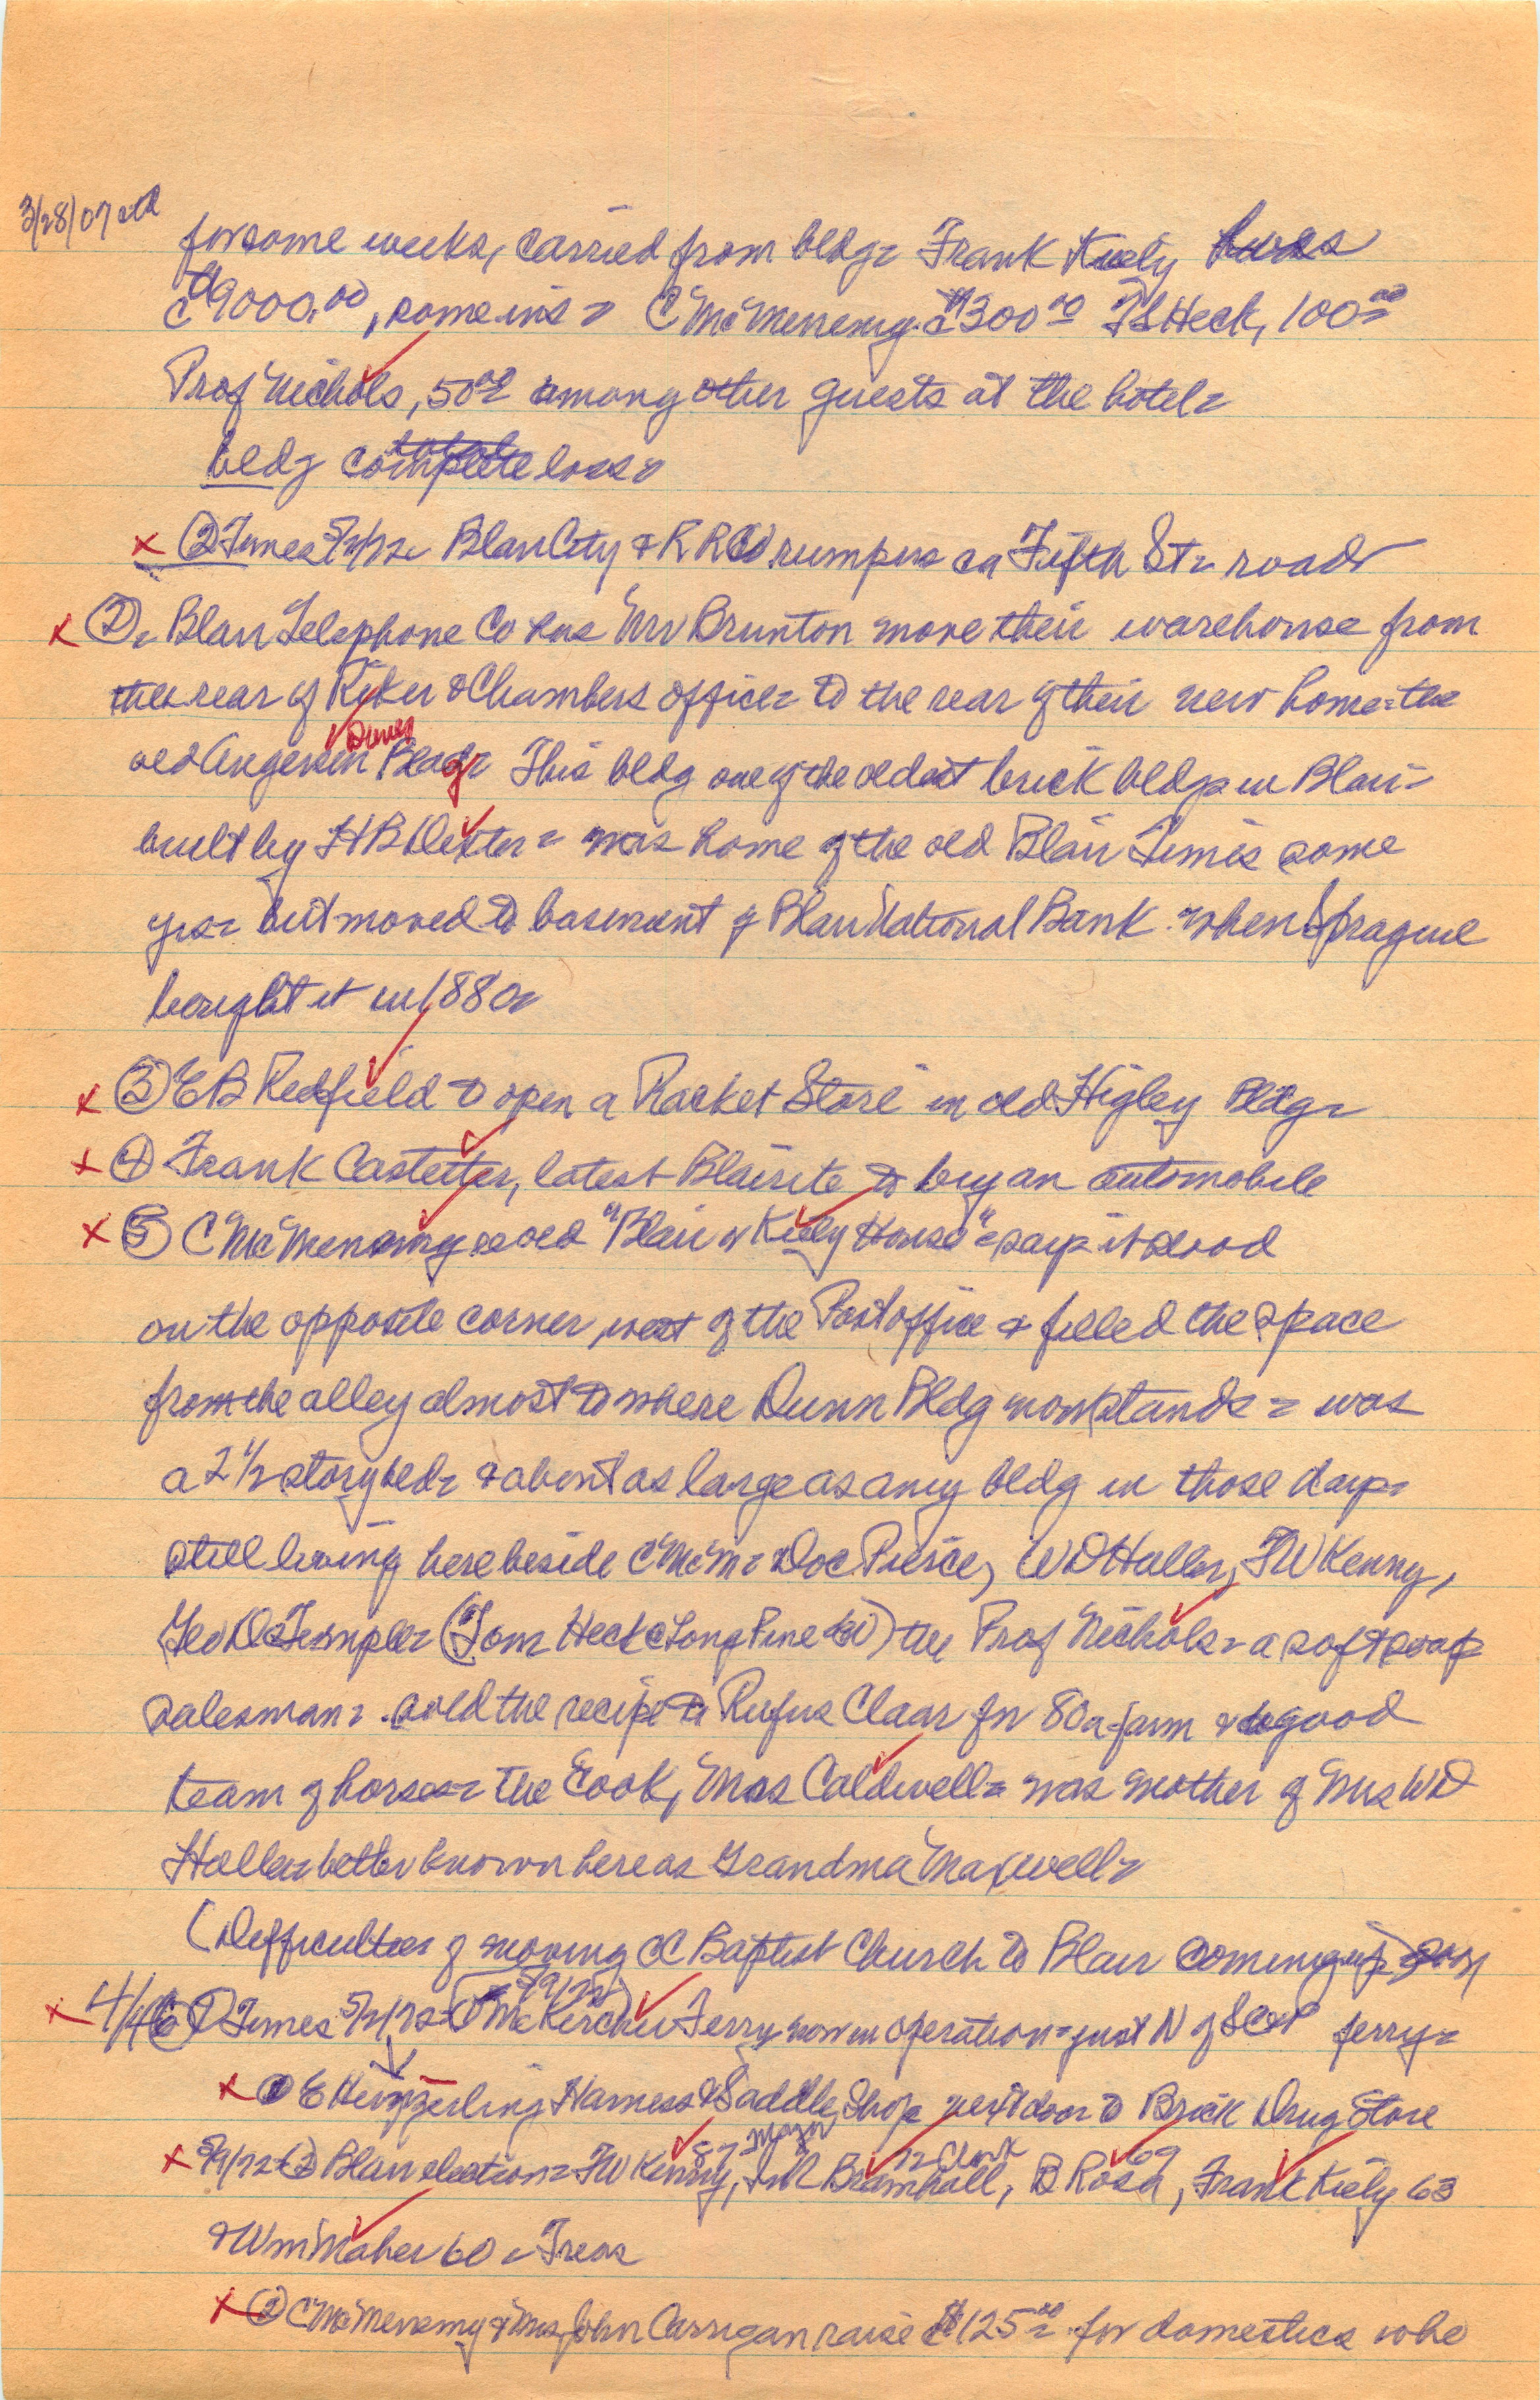 3/28/07 ctd
for some weeks, carried from bldg= Frank Kiely loses
c $9000.00, some ins= C McMenemy c $300.00 T S Heck, 100.00
Prof Nichols, 50.00 among other guests at the hotel=
bldg total loss=
x (2) Times 5/2/72 Blair City & R R Co rumpus ca Fifth St= road
x (2)= Blair Telephone Co has Mr Brunton move their warehouse from
the rear of Riker & Chambers office= to the rear of their new home= the
old Axgensen Bldg= This bldg one of the oldest brick bldgs in Blair=
built by H B Dexter= was home of the old Blair Times some
yrs= but moved to basement of Blair National Bank when Sprague
bought it in 1880=
x (3) E B Redfield to open a Racket Store in old Higley Bldg=
x (4) Frank Castetter, latest Blairite to buy an automobile
x (5) C McMenemy re old "Blair or Kiely House"= says it stood
on the opposite corner, west of the Postoffice & filled the space
from the alley almost to where Dunn Bldg now stands= was
a 2 1/2 story bld= & about as large as any bldg in those days=
still living here beside C McM= Doc Pierce, W D Haller, F W Kenny,
Geo D Temple= (Tom Heck c Long Pine ) the Prof Nichols= a soft soap
salesman= sold the recipe to Rufus Claar for 80 a farm & good
team of horses= The Cook, Mrs Caldwell= was mother of Mrs W D
Haller better known here as Grandma Maxwell=
(Difficulties of moving CC Baptist Church to Blair coming up) soon
x 4/4 (1) Times 5/2/72= (5/9/72) McKercher Ferry now in operation= just N of S C & P ferry=
x (1) E Harness & Saddle Shop next door to Brick Drug Store
x 5/9/72= (2) Blair election= F W Kenny, 87 Mayor, Bramhall, 72 Clerk B Rosa, 69 Frank Kiely 63
& Wm Maher 60= Treas
x (2) C McMenemy & Mrs John Carrigan raise $125.00= for domestics who